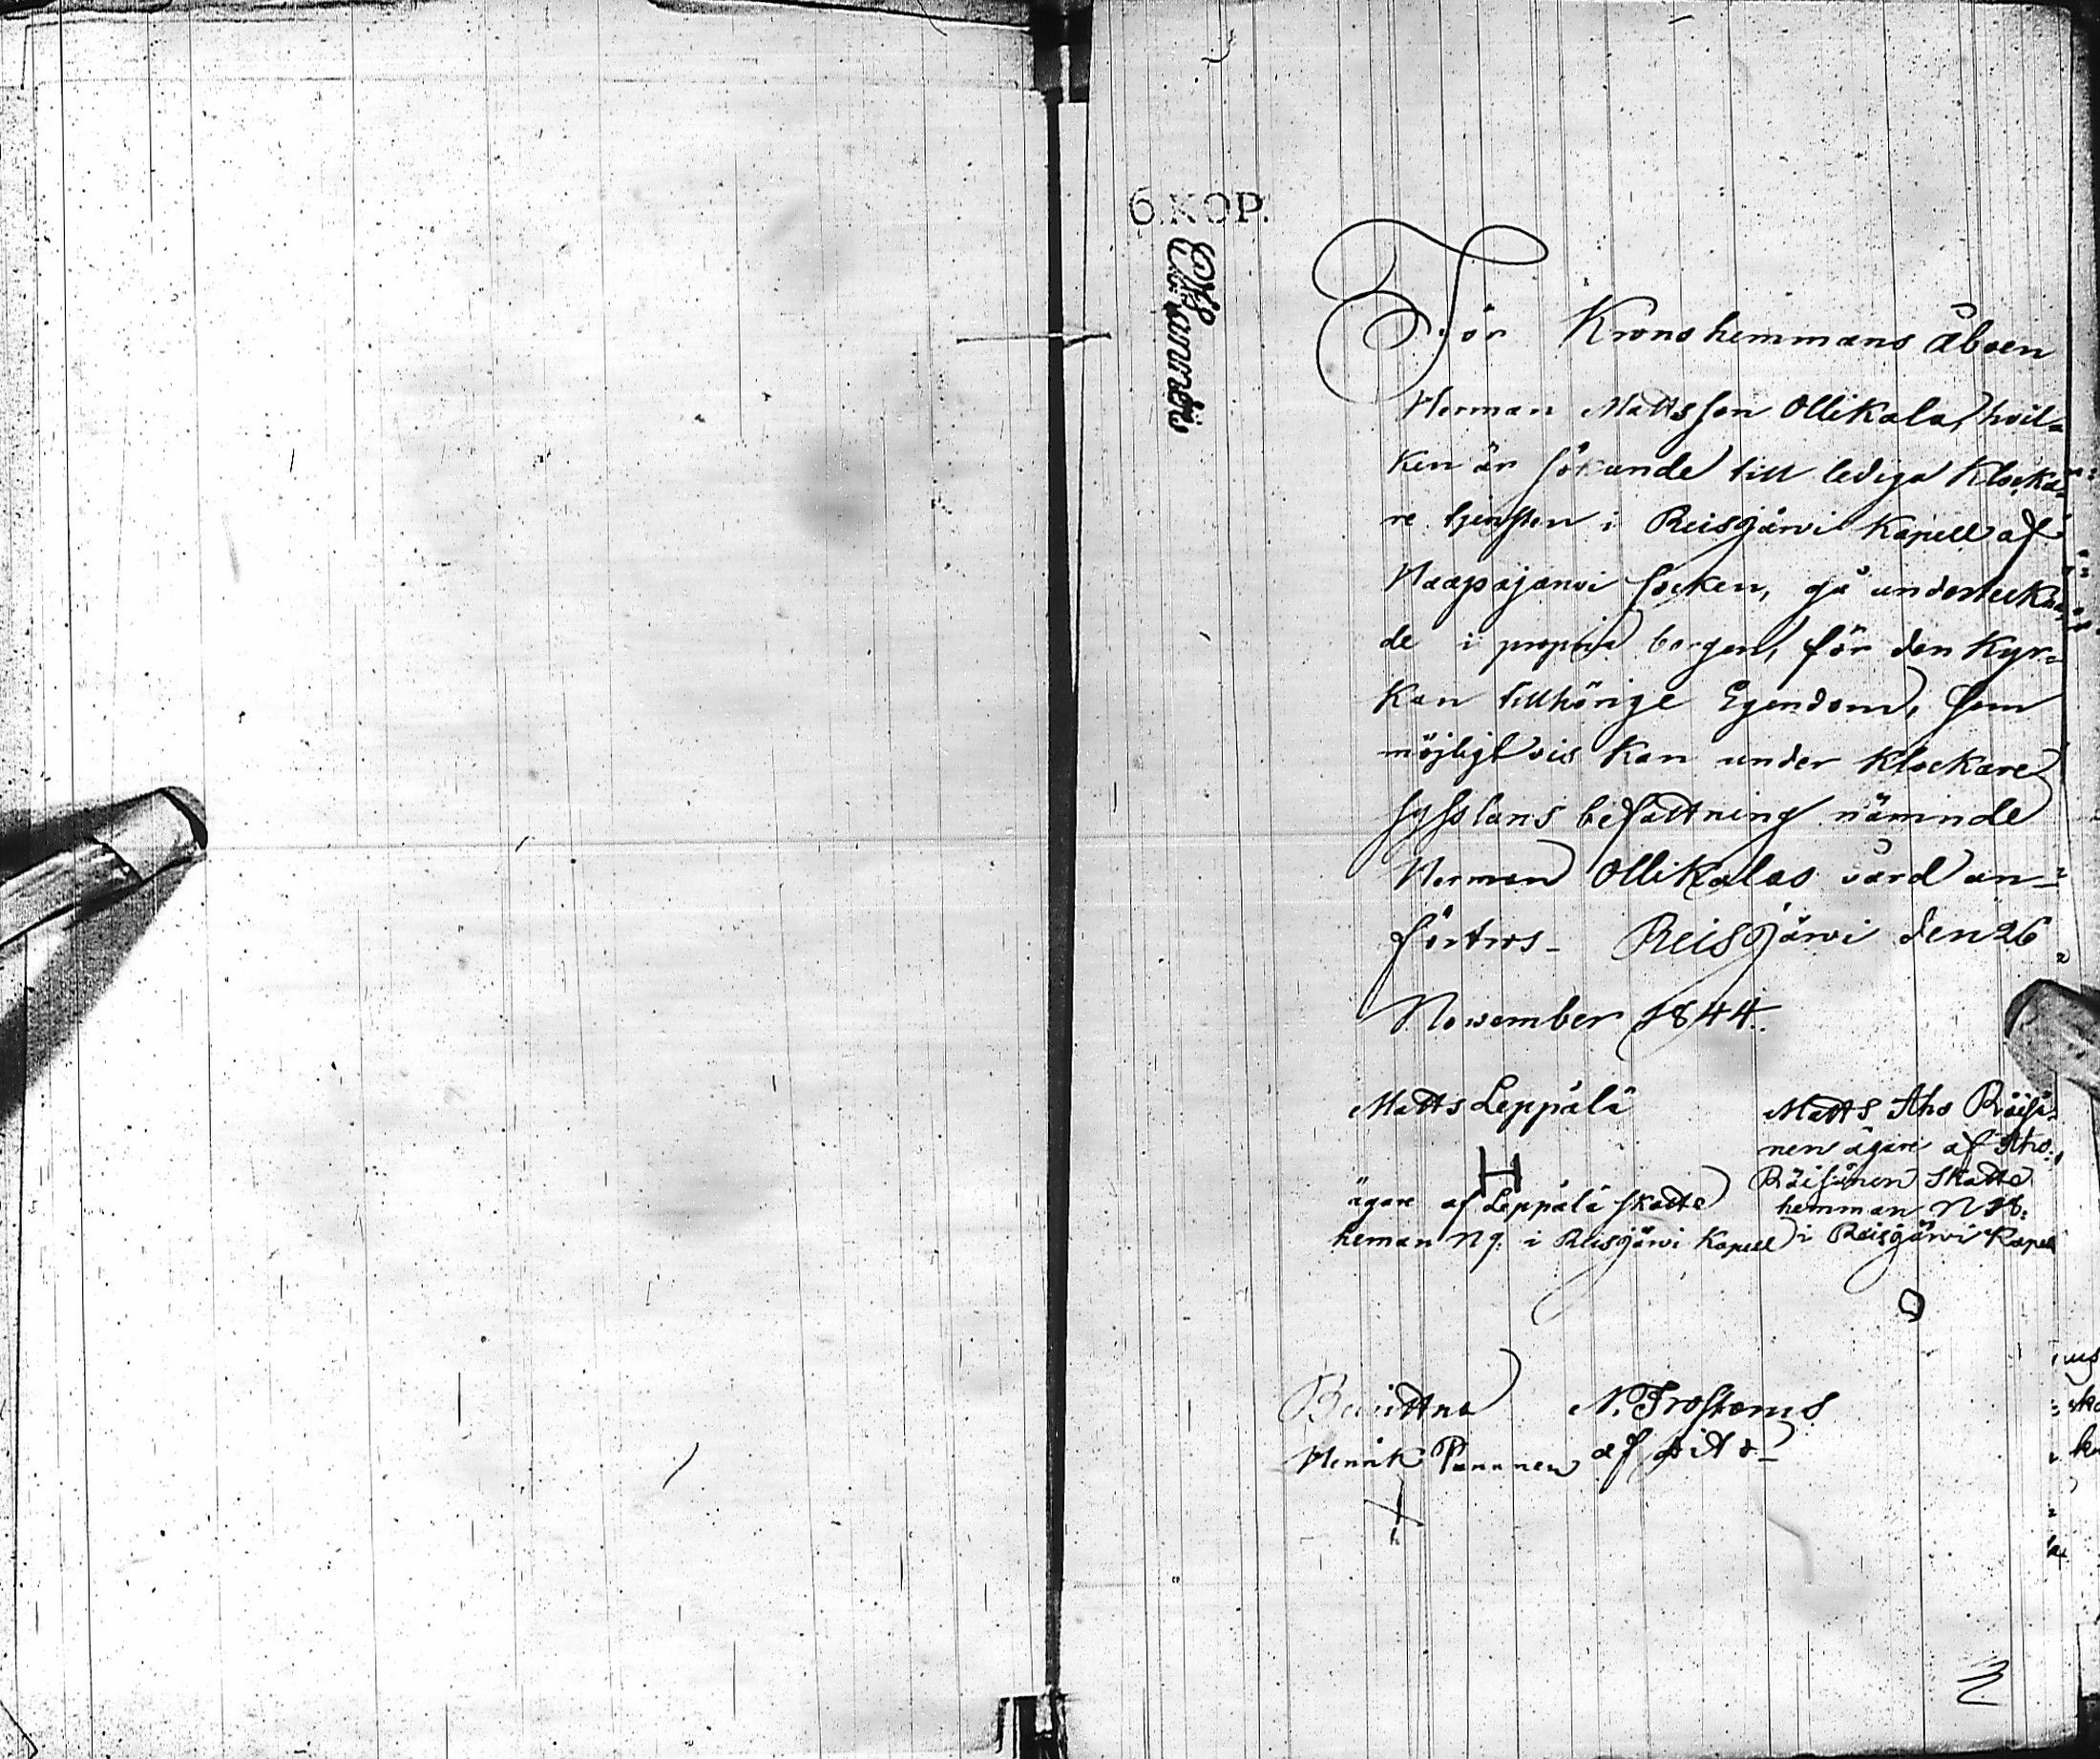 6 KOP.
För Kronohemmans åboen
Herman Mattsson Ollikala, hvil=
ken är sökande till lediga klocka=
re tjensten i Reisjärvi Kapell af
Haapajärvi Socken, gå underteckna,
de i proprie borgen, för den Kyr=
kan tillhörige Egendom, som
möjligtvis kan under klockare
sysslans befattning nämnde
Herman Ollikalas vård an=
förtros. Reisjärvi den 26
November 1844.
Matts Leppälä
H
ägare af Leppälä skatte
heman N 9. i Reisjärvi Kapell
Matts Aho Räisä=
nen ägare af Aho.
Räisänen Skatte
hemman N
i Reisjärvi Kapell
Bevittna
Henrik
N. Frosterus
af